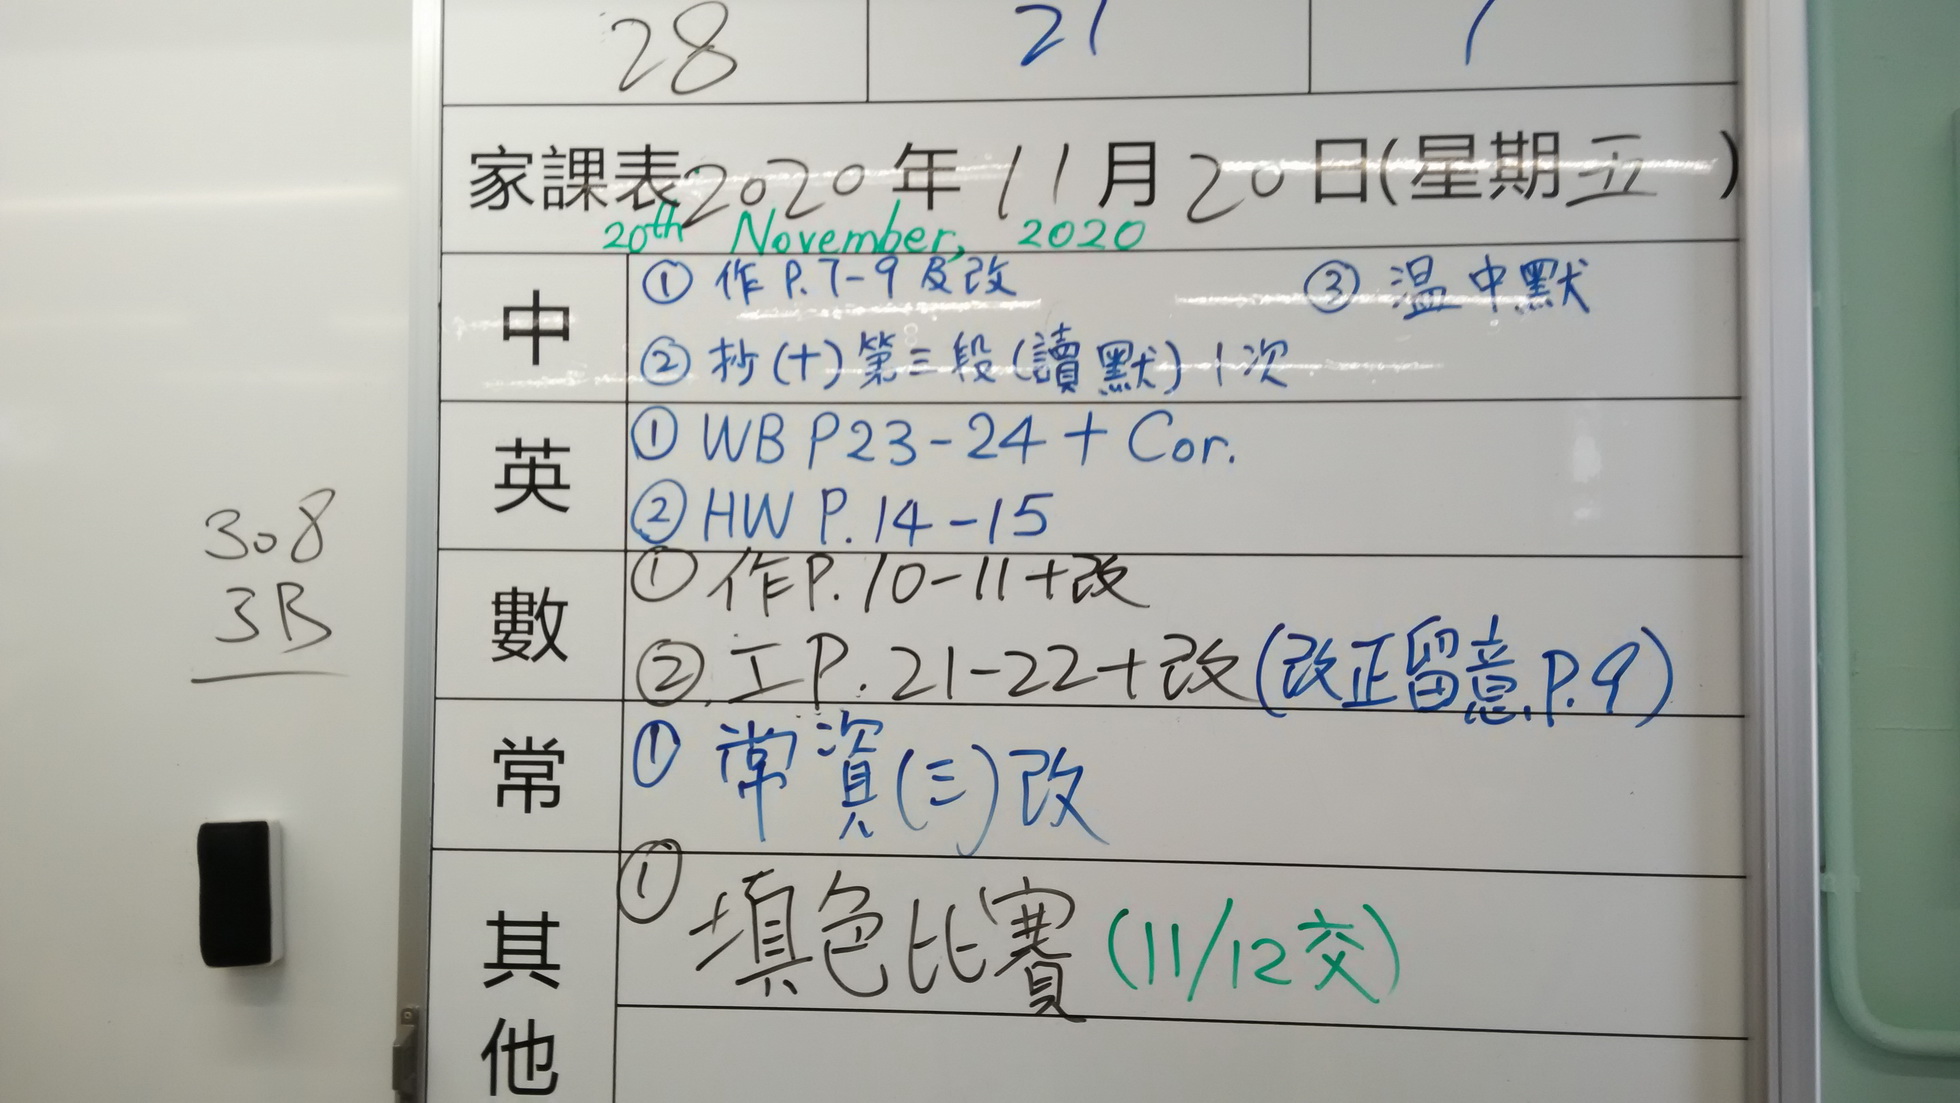 28 21 1
家課表 2020年11月20日(星期五)
20th November, 2020
中 ① 作 P.7-9 及改 ③ 溫中默
② 抄(十)第三段(讀默)1次
英 ① WB P23-24 + Cor.
② HW P.14-15
數 ① 作P.10-11+改
② 工P.21-22+改(改正留意P.9)
常 ① 常資(三)改
其他 ① 填色比賽(11/12交)
308
3B